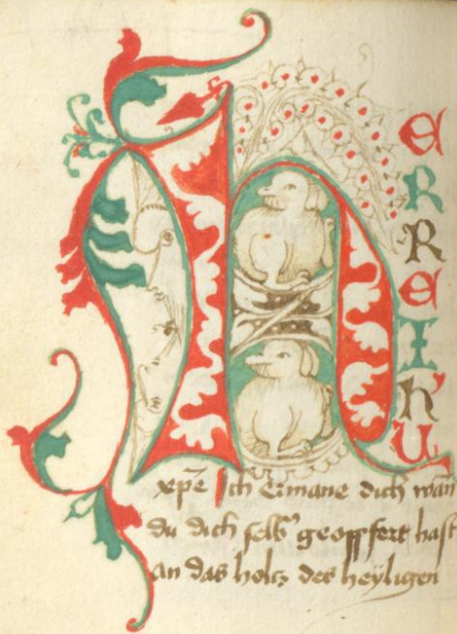 H
E
R
R
E
I
h
U
xp̄e Ich Ermane dich wan
du dich selb geopffert hast
an das holtz des heyligen